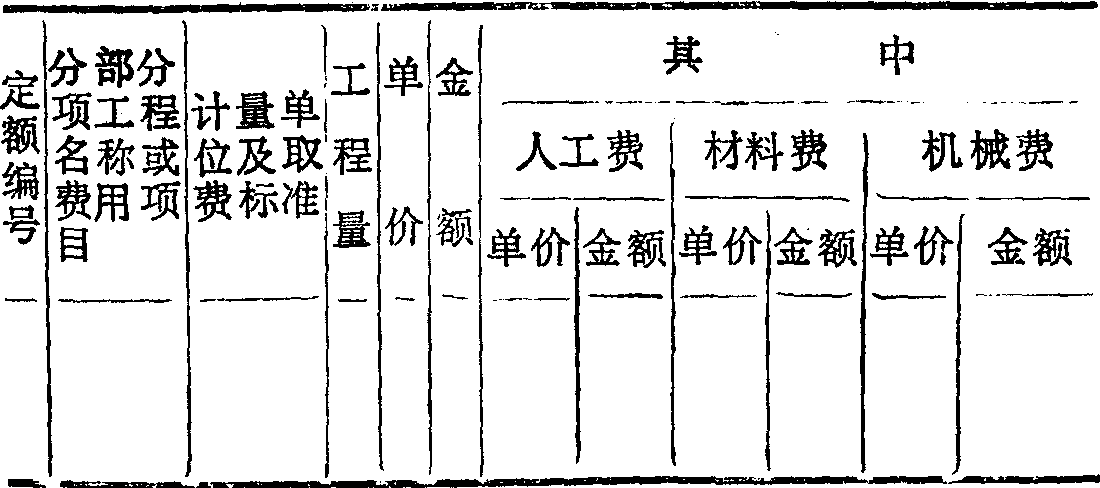 定额编号
分部分
项工程
名称或
费用项
目
计量单
位及取
费标准
工程量
单价
金额
其中
人工费
材料费
机械费
单价
金额
单价
金额
单价
金额